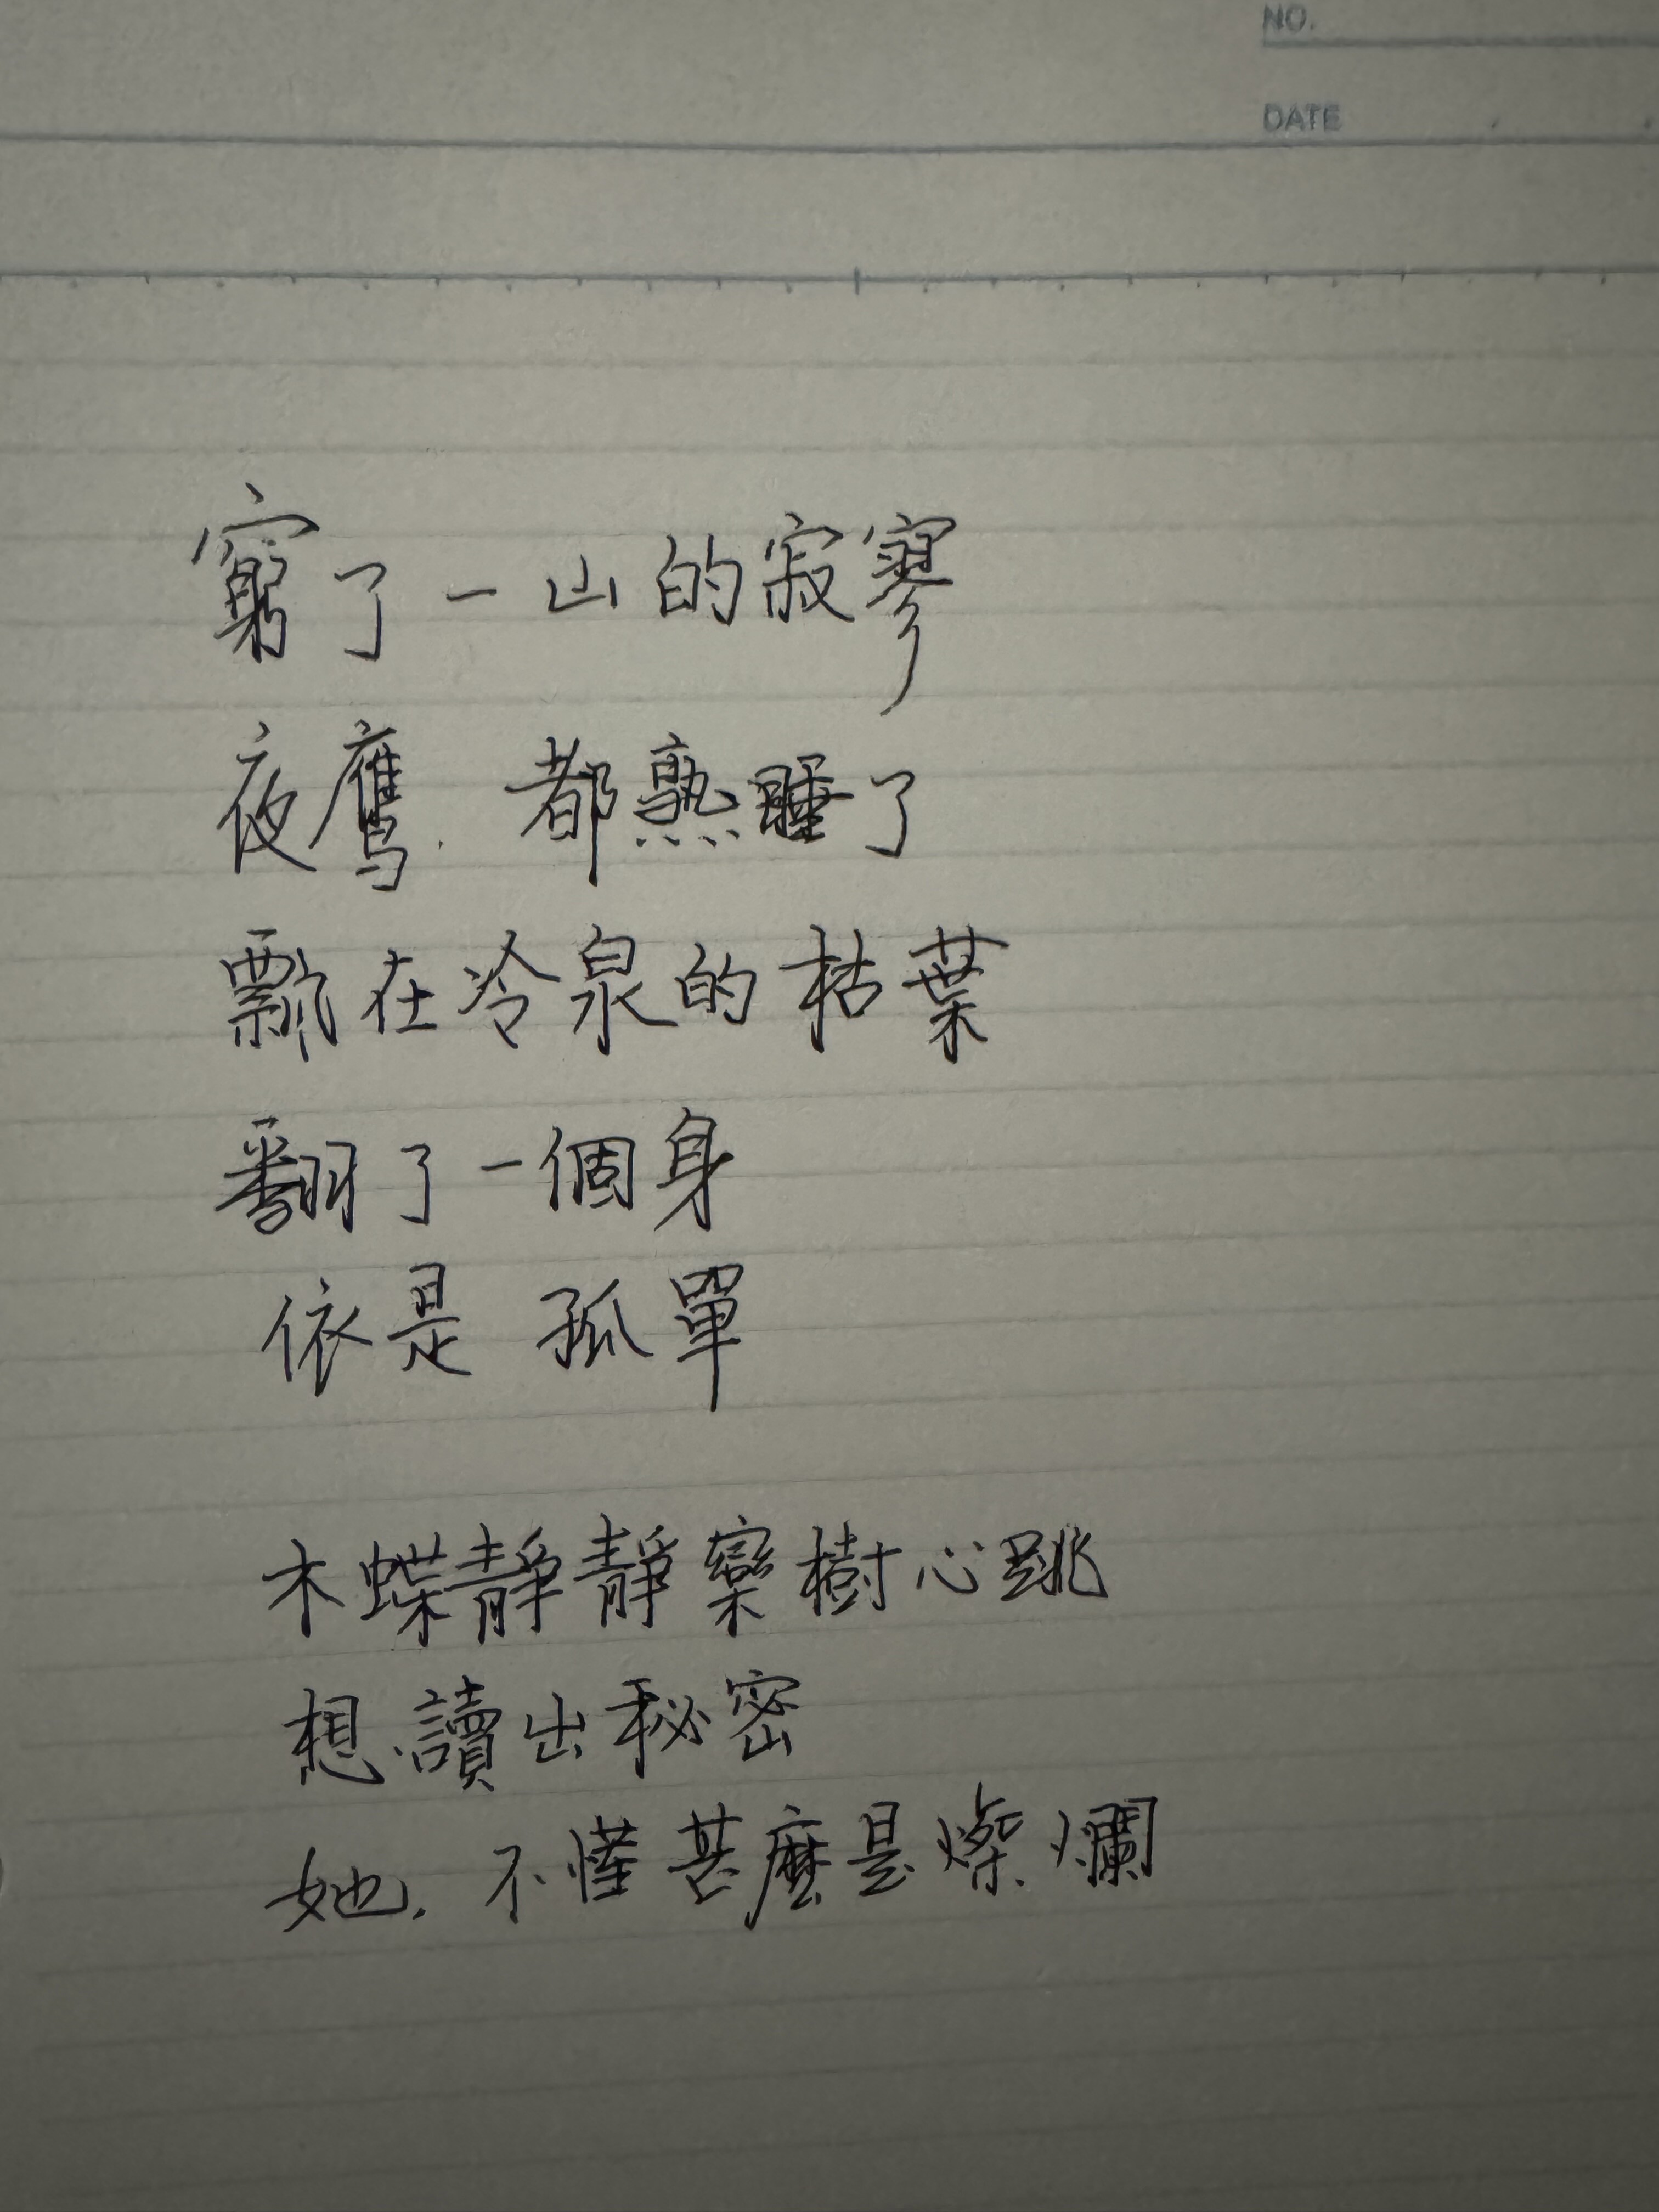 NO.
DATE
窮了一山的寂寥
夜鷹.都熟睡了
飄在冷泉的枯葉
翻了一個身
依是 孤單
木蝶靜靜欒樹心跳
想讀出秘密
她.不懂甚麼是燦爛